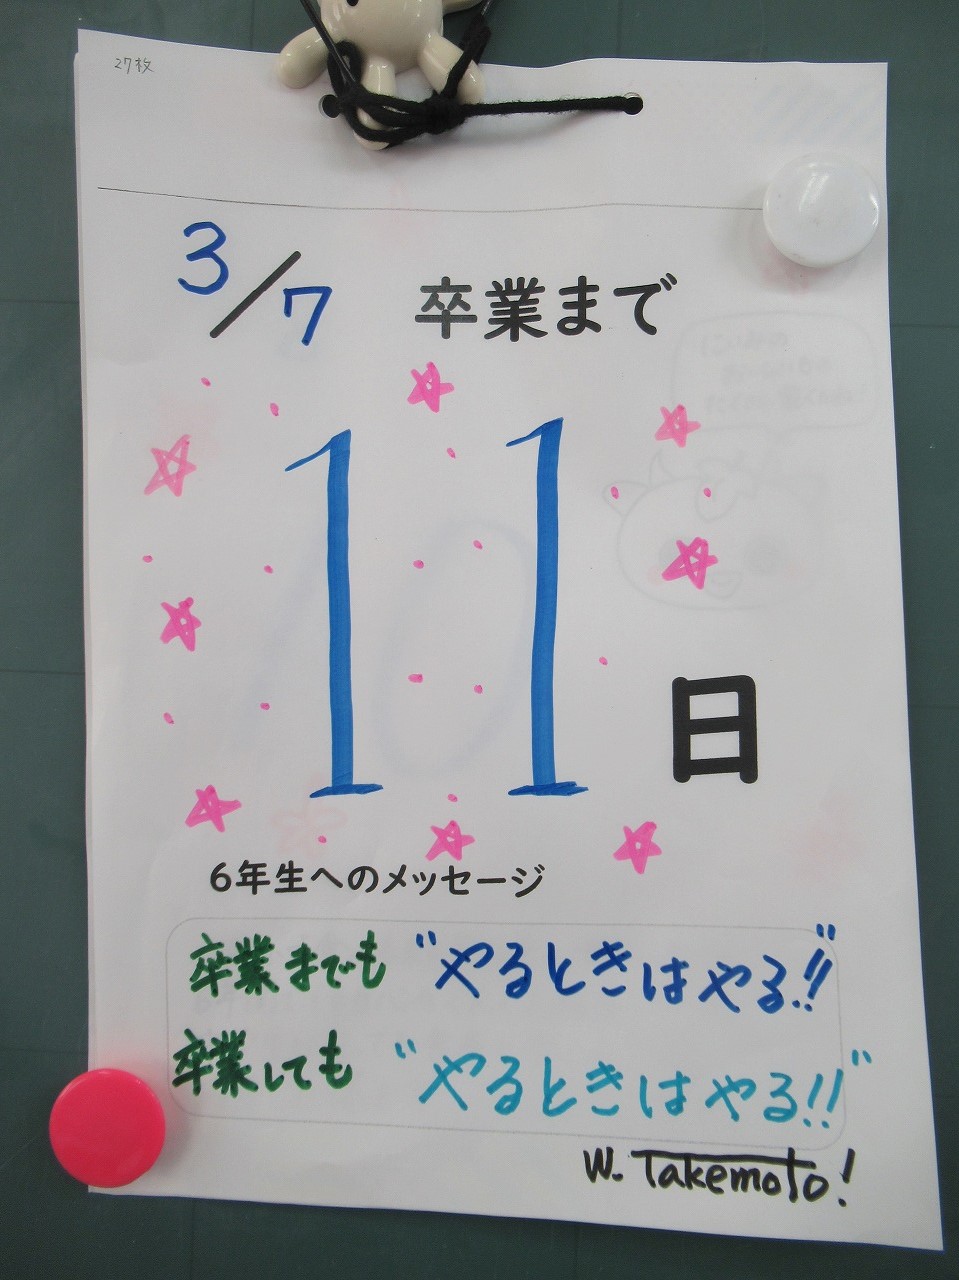 27枚
3/7 卒業まで
11日
6年生へのメッセージ
卒業までも "やるときはやる!!"
卒業しても "やるときはやる!!"
W. Takemoto!